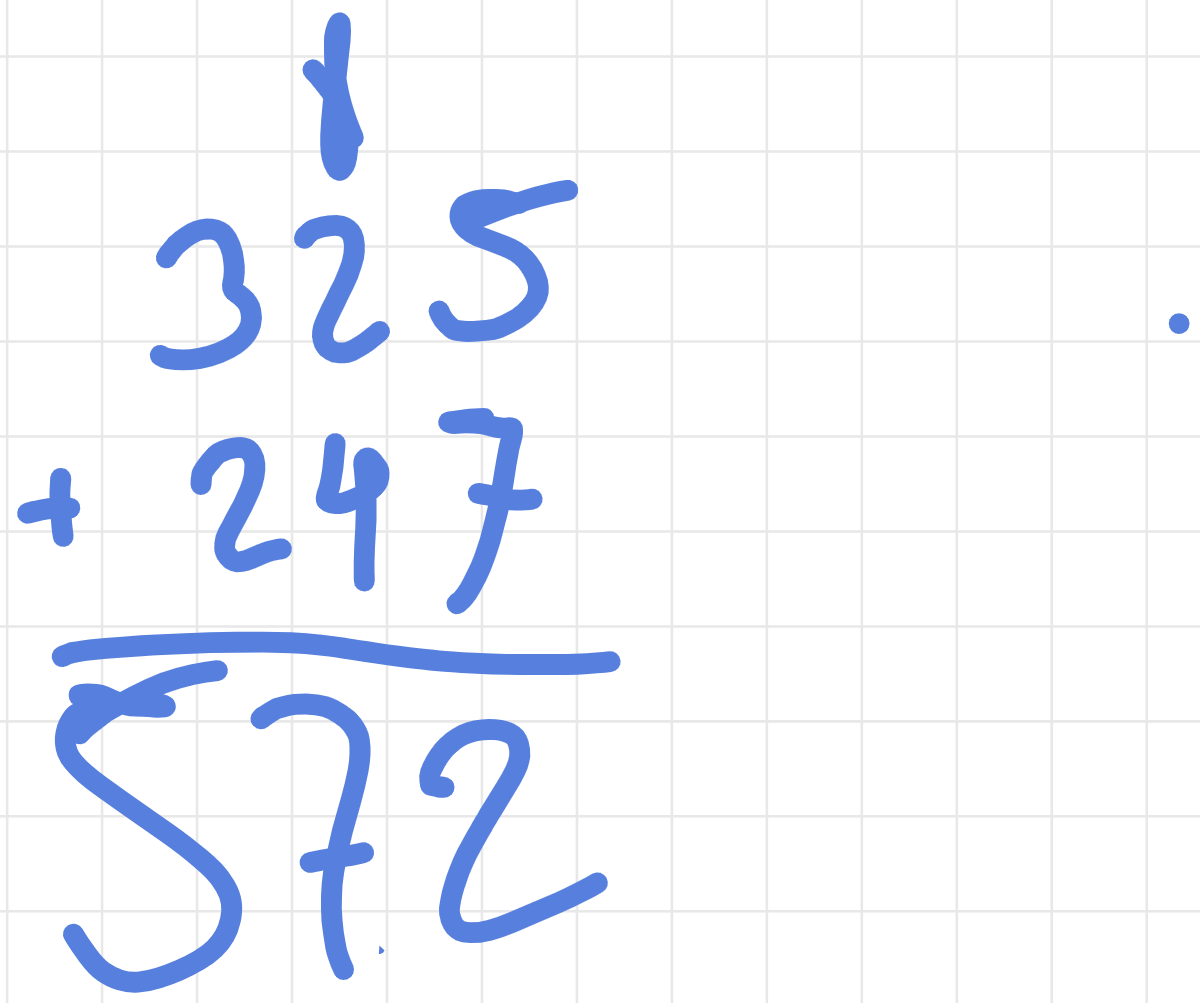 1
325
+ 247
572